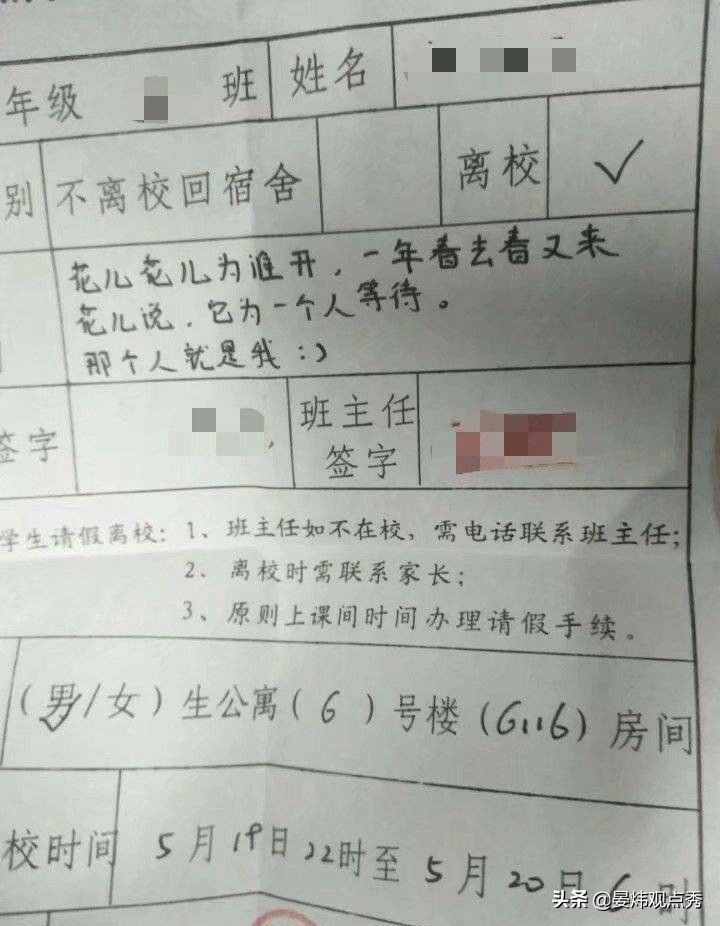 年级 班 姓名
别 不离校回宿舍 离校 ✓
花儿花儿为谁开,一年春去春又来
花儿说,它为一个人等待。
那个人就是我:)
签字 班主任签字
学生请假离校:1、班主任如不在校,需电话联系班主任;
2、离校时需联系家长;
3、原则上课间时间办理请假手续。
(男/女)生公寓(6)号楼(6116)房间
校时间 5月19日22时至5月20日6时
头条 @晏炜观点秀